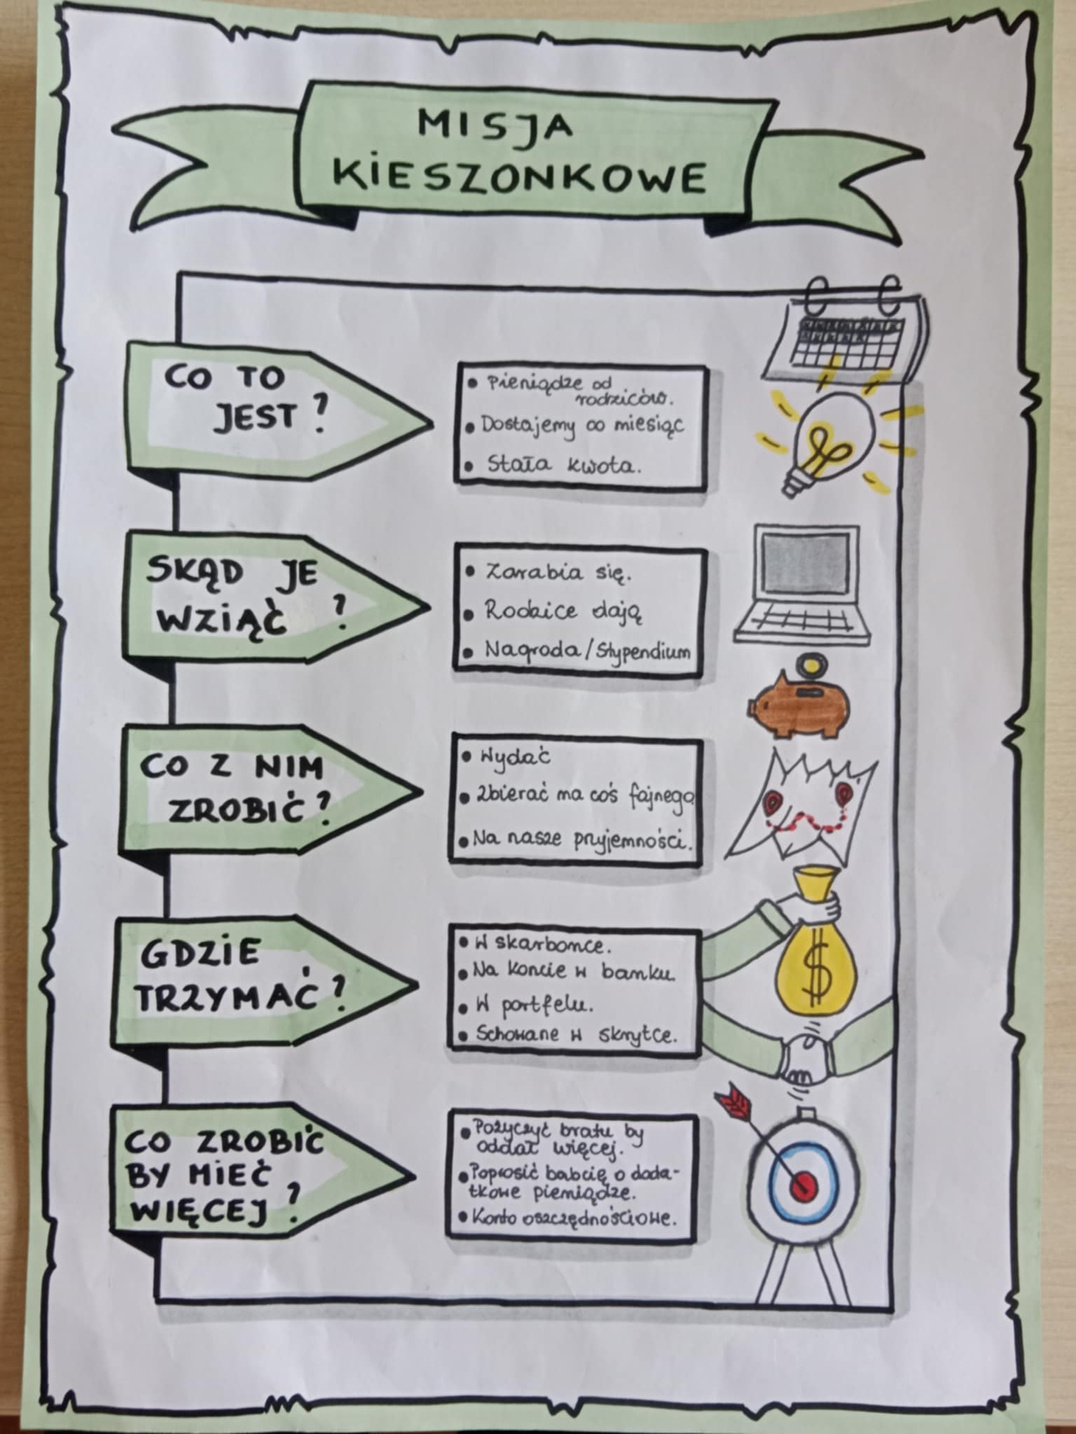 MISJA
KIESZONKOWE
CO TO
JEST?
• Pieniądze od
rodziców.
• Dostajemy co miesiąc
• Stała kwota.
SKĄD JE
WZIĄĆ ?
• Zarabia się.
• Rodzice dają
• Nagroda/Stypendium
CO Z NIM
ZROBIĆ?
• Wydać
• Zbierać ma coś fajnego
• Na nasze pryjemności.
GDZIE
TRZYMAĆ?
• W skarbonce.
• Na koncie w banku.
• W portfelu.
• Schowane w skrytce.
CO ZROBIĆ
BY MIEĆ
WIĘCEJ ?
• Pożyczyć bratu by
oddał więcej.
• Poprosić babcię o doda-
tkowe pieniądze.
• Konto oszczędnościowe.
$